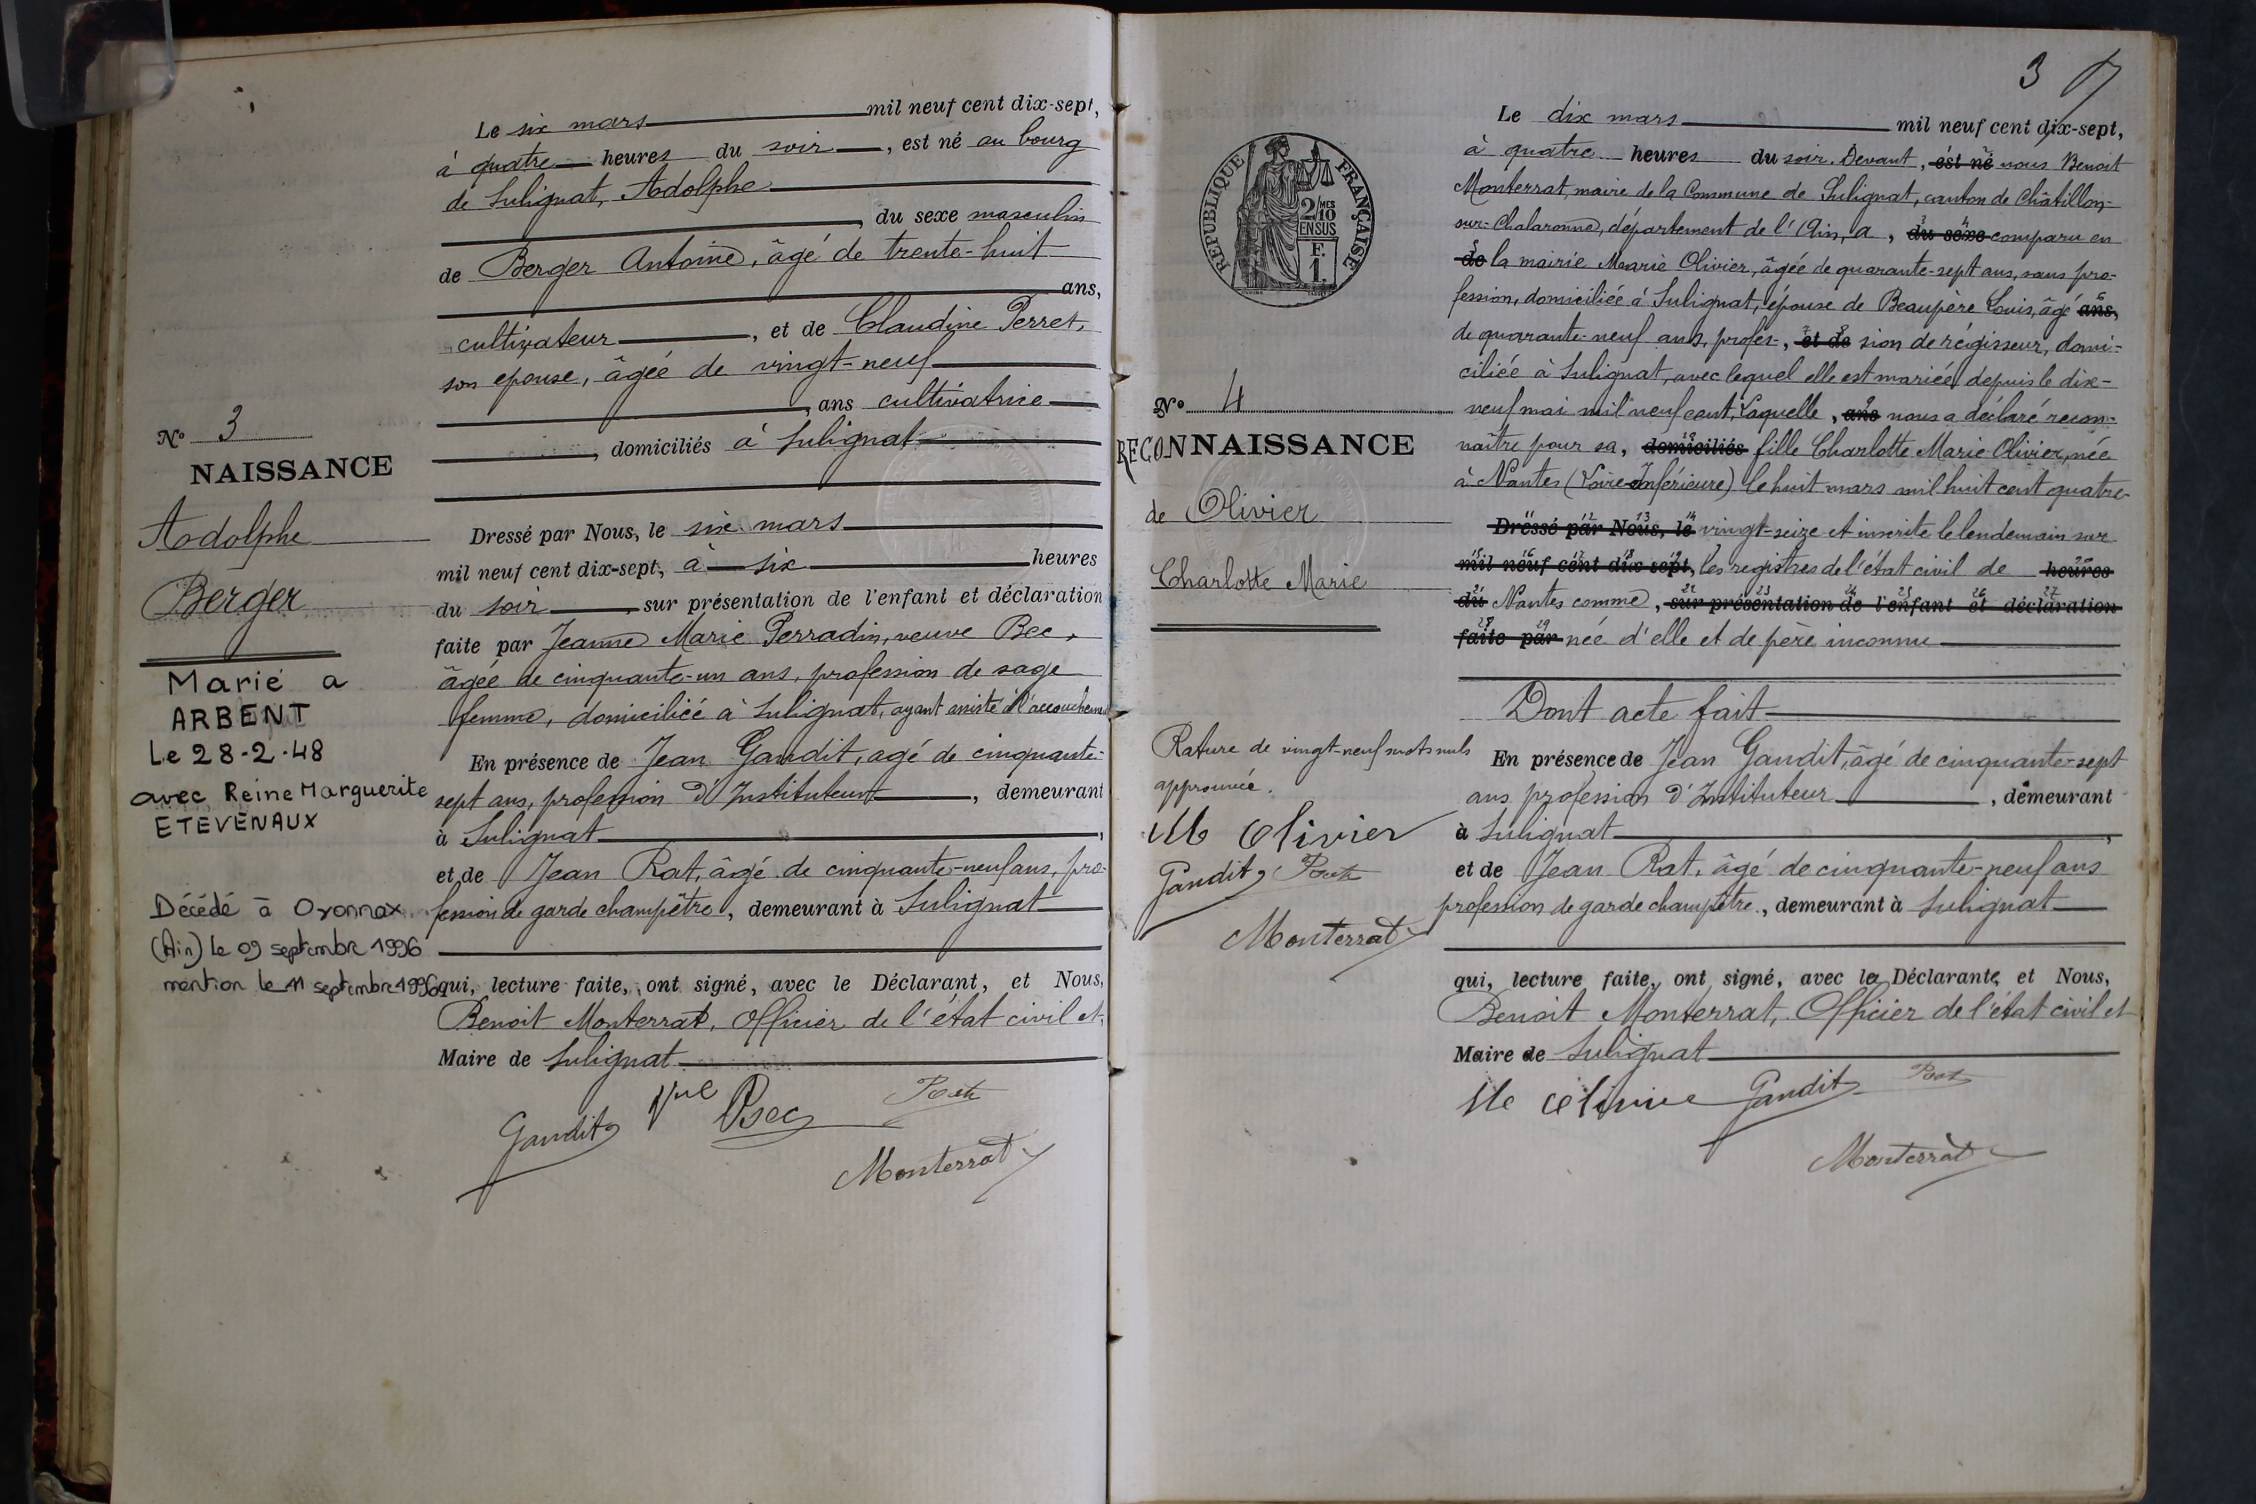 Le six mars mil neuf cent dix-sept,
à quatre heures du soir, est né au bourg
de Sulignat, Adolphe
, du sexe masculin
de Berger Antoine, âgé de trente-huit
ans,
cultivateur, et de Claudine Perret,
son epouse, âgée de vingt-neuf
, ans cultivatrice
, domiciliés à Sulignat
Nº 3
NAISSANCE
Adolphe
Berger
Marié a
ARBENT
Le 28-2-48
avec Reine Marguerite
ETEVENAUX
Décédé à Oyonnax
(Ain) le 09 septembre 1996
mention le 11 septembre 1996
Dressé par Nous, le six mars
mil neuf cent dix-sept, à six heures
du soir, sur présentation de l'enfant et déclaration
faite par Jeanne Marie Perradin, veuve Bec,
âgée de cinquante-un ans, profession de sage
femme, domiciliée à Sulignat, ayant assisté à l'accouchement
En présence de Jean Gandit, agé de cinquante-
sept ans, profession d'Instituteur, demeurant
à Sulignat,
et de Jean Rat, âgé de cinquante-neuf ans, pro-
fession de garde champêtre, demeurant à Sulignat
qui, lecture faite, ont signé, avec le Déclarant, et Nous,
Benoit Monterrat, Officier de l'état civil et
Maire de Sulignat
Gandit Vve Bec Rat
Monterrat
3
Le dix mars mil neuf cent dix-sept,
à quatre heures du soir. Devant, est né nous Benoit
Monterrat, maire de la Commune de Sulignat, canton de Châtillon-
sur-Chalaronne, département de l'Ain, a, du sexe comparu en
de la mairie Marie Olivier, âgée de quarante-sept ans, sans pro-
fession, domiciliée à Sulignat, épouse de Beaupère Louis, âgé ans,
de quarante-neuf ans, profes-, et de sion de régisseur, domi-
ciliée à Sulignat, avec lequel elle est mariée depuis le dix-
neuf mai mil neuf cent, Laquelle, ans nous a déclaré recon-
naître pour sa, domiciliés fille Charlotte Marie Olivier, née
à Nantes (Loire-Inférieure) le huit mars mil huit cent quatre-
Dressé par Nous, le vingt-seize et inscrite le lendemain sur
mil neuf cent dix-sept, les registres de l'état civil de heures
du Nantes comme, sur présentation de l'enfant et déclaration
faite par née d'elle et de père inconnu
Dont acte fait
RÉPUBLIQUE FRANÇAISE
2/10 MES
EN SUS
F.
1.
Nº 4
RECONNAISSANCE
de Olivier
Charlotte Marie
Rature de vingt-neuf mots nuls
approuvée.
M Olivier
Gandit Rat
Monterrat
En présence de Jean Gandit, âgé de cinquante-sept
ans profession d'Instituteur, demeurant
à Sulignat,
et de Jean Rat, âgé de cinquante-neuf ans
profession de garde champêtre, demeurant à Sulignat
qui, lecture faite, ont signé, avec la Déclarante, et Nous,
Benoit Monterrat, Officier de l'état civil et
Maire de Sulignat
Gandit Rat
Monterrat